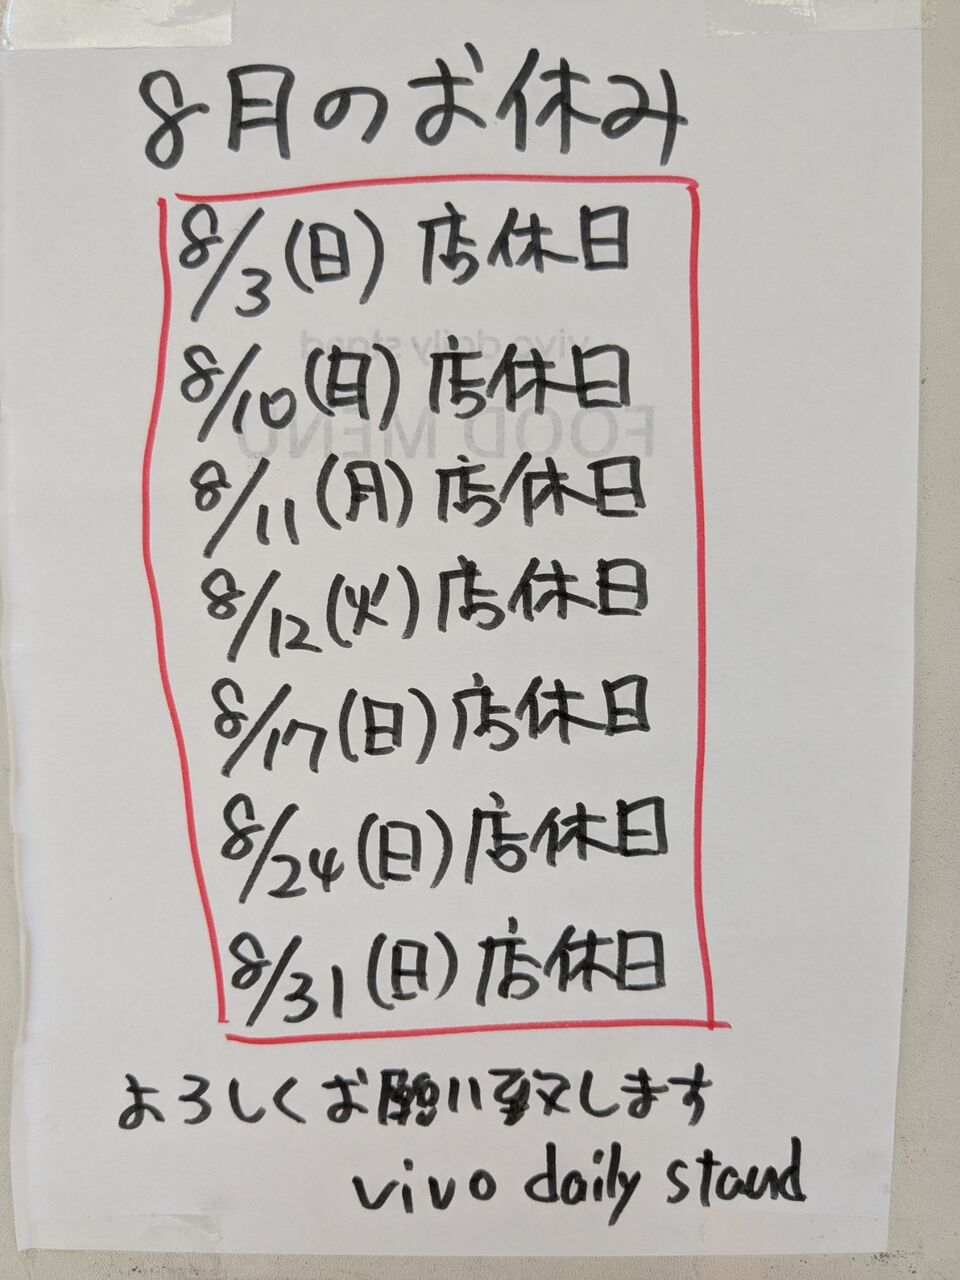 8月のお休み
8/3(日) 店休日
8/10(日) 店休日
8/11(月) 店休日
8/12(火) 店休日
8/17(日) 店休日
8/24(日) 店休日
8/31(日) 店休日
よろしくお願い致します
vivo daily stand
vivo daily stand
FOOD MENU